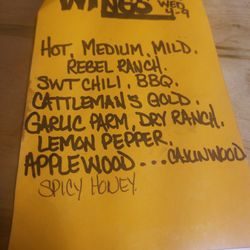 WINGS WED
4-9
HOT, MEDIUM, MILD.
REBEL RANCH.
SWT CHILI, BBQ.
CATTLEMAN'S GOLD.
GARLIC PARM, DRY RANCH.
LEMON PEPPER.
APPLEWOOD... CAJUNWOOD
SPICY HONEY.